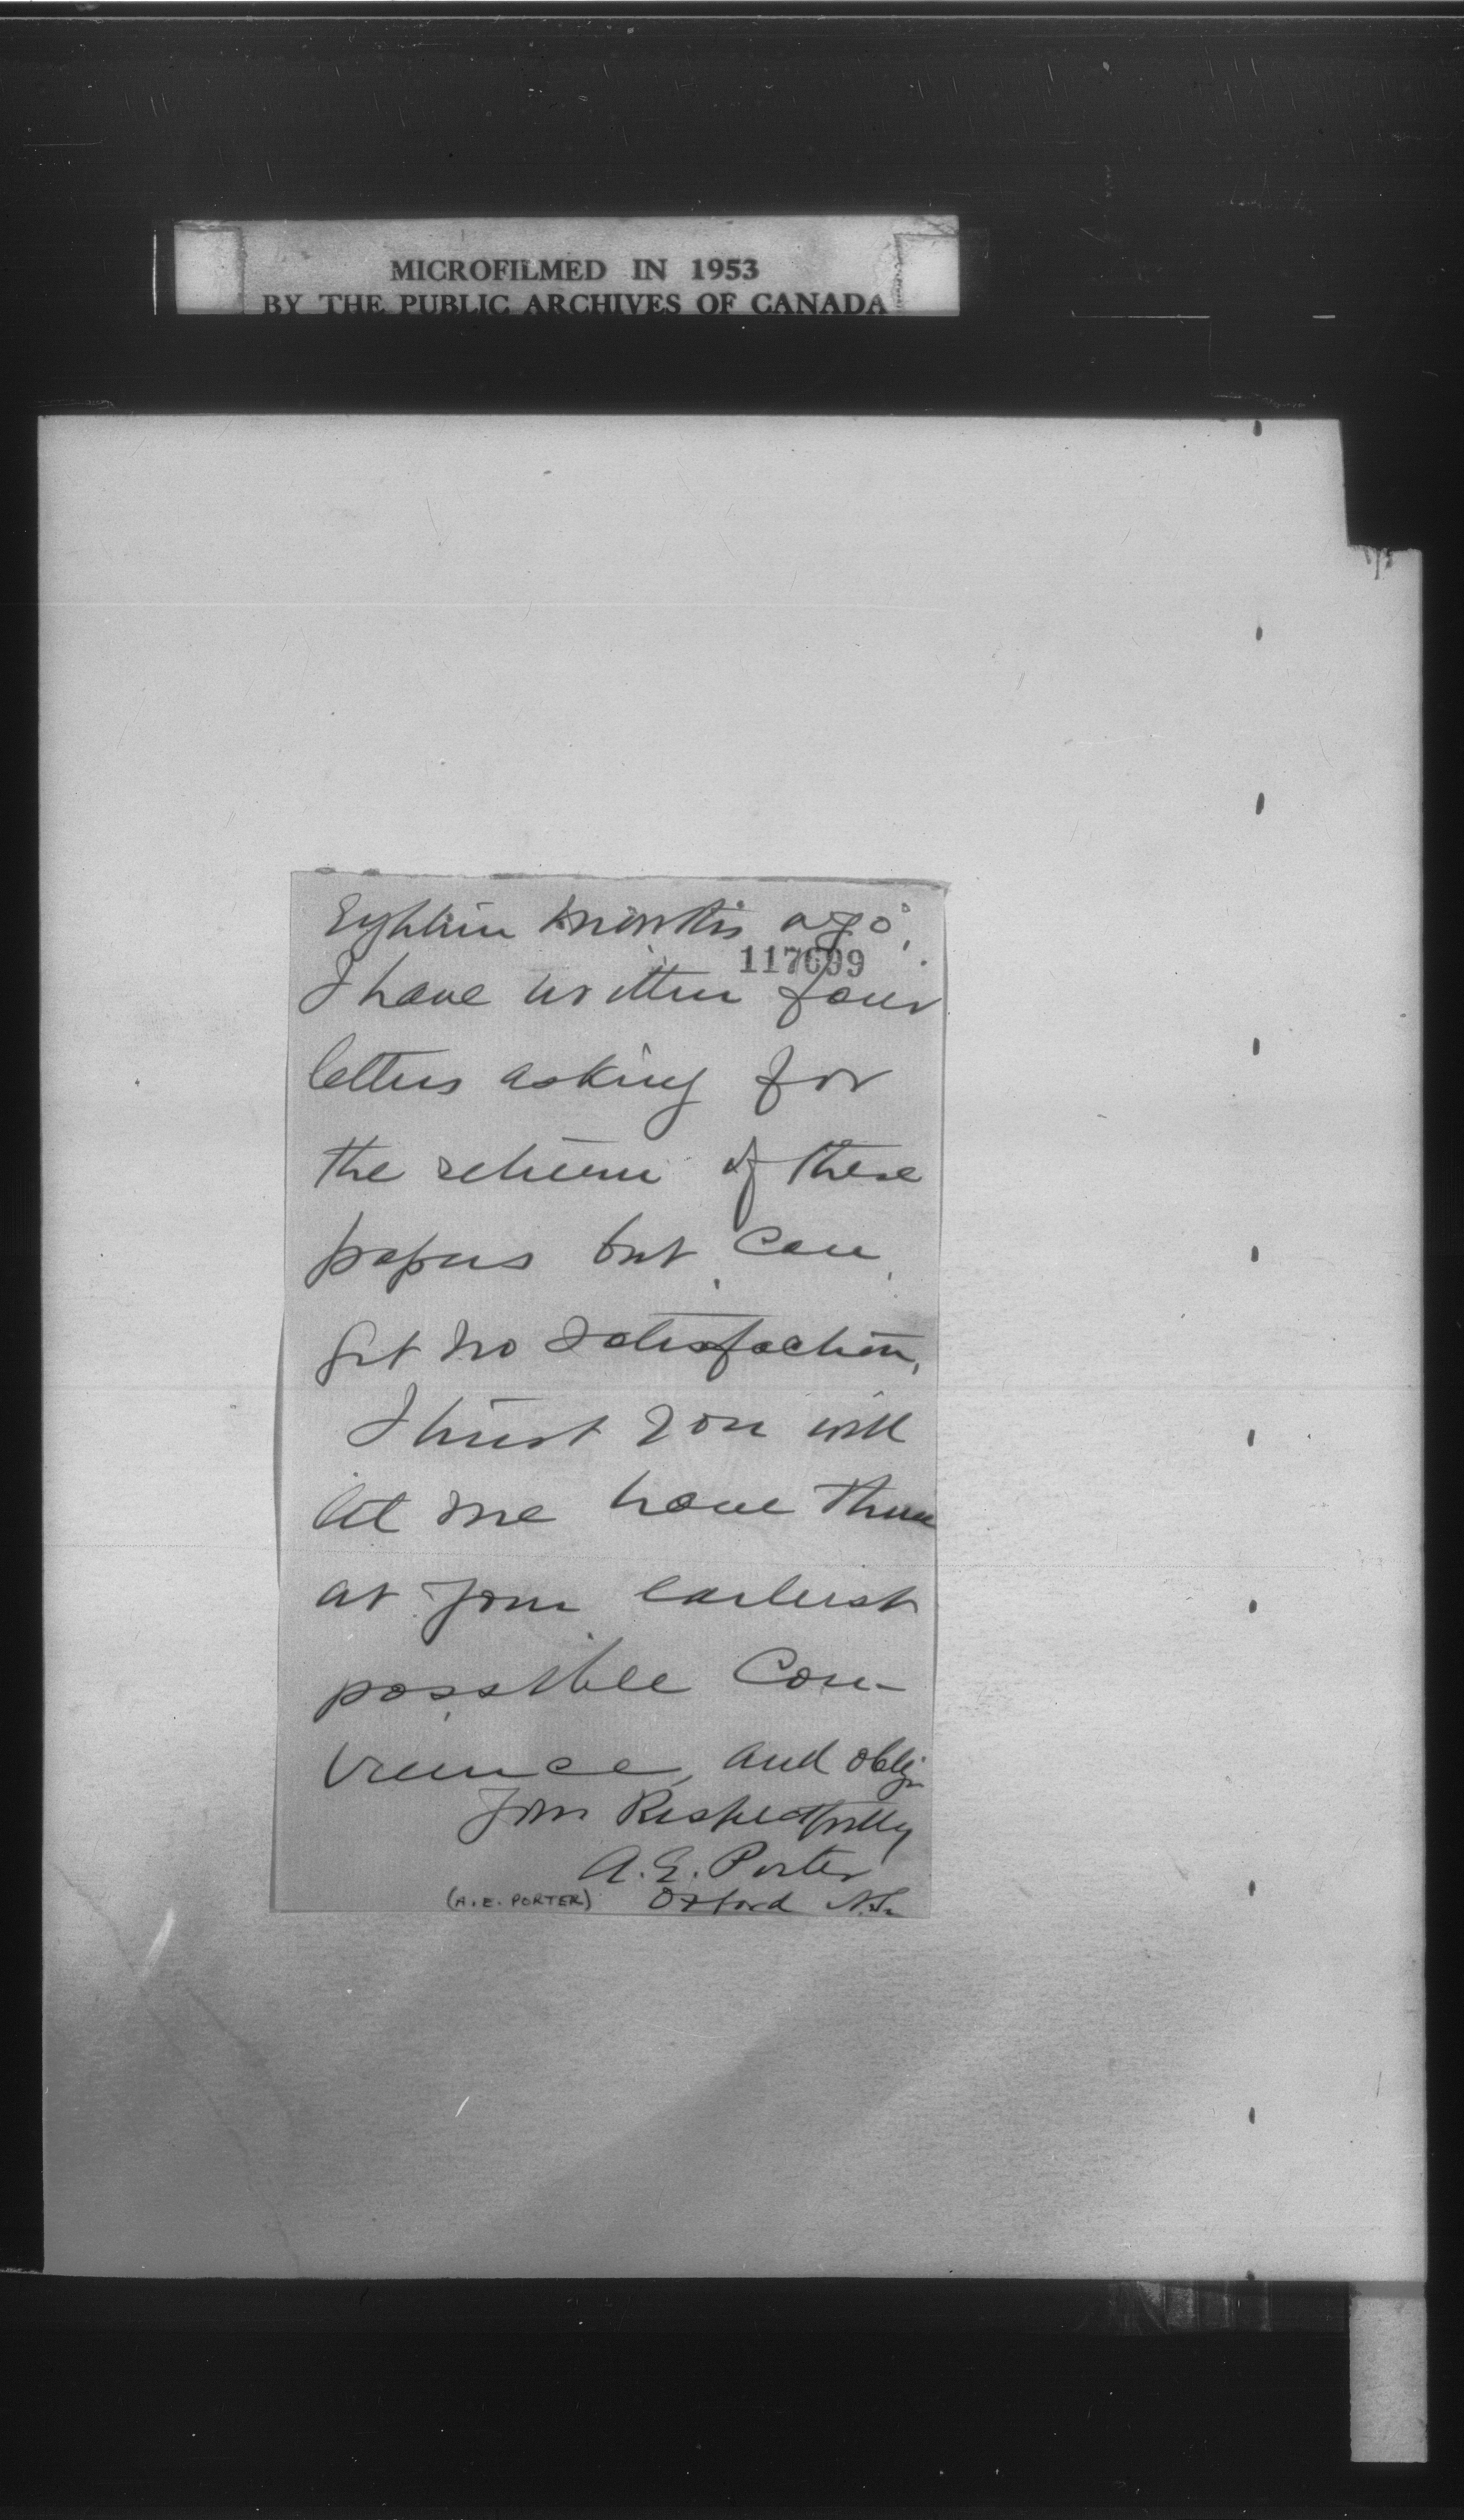 MICROFILMED IN 1953
BY THE PUBLIC ARCHIVES OF CANADA
Eighteen months ago,
117699
I have written four
letters asking for
the return of these
papers but can
get no satisfaction,
I trust you will
let me have them
at your earliest
possible Con-
venience, and oblige
Yours Respectfully
A. E. Porter
(A. E. PORTER) Oxford N.S.